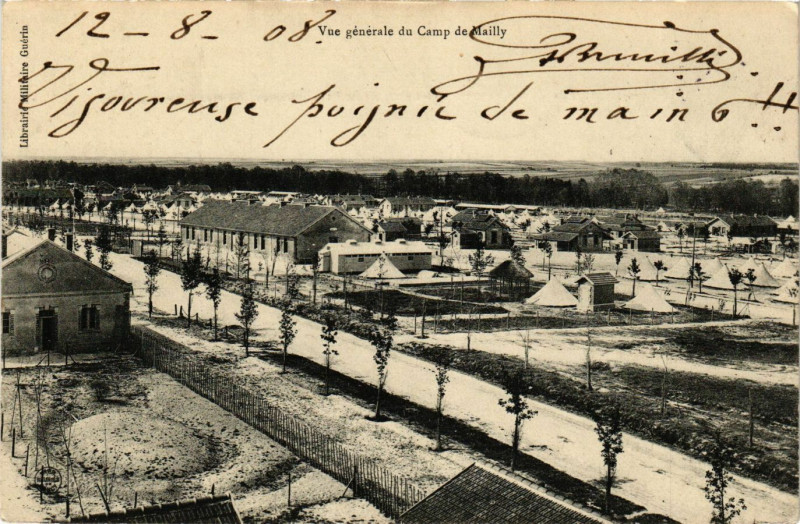 12-8-08.
Vue générale du Camp de Mailly
Vigoureuse poignée de main
Librairie Militaire Guérin